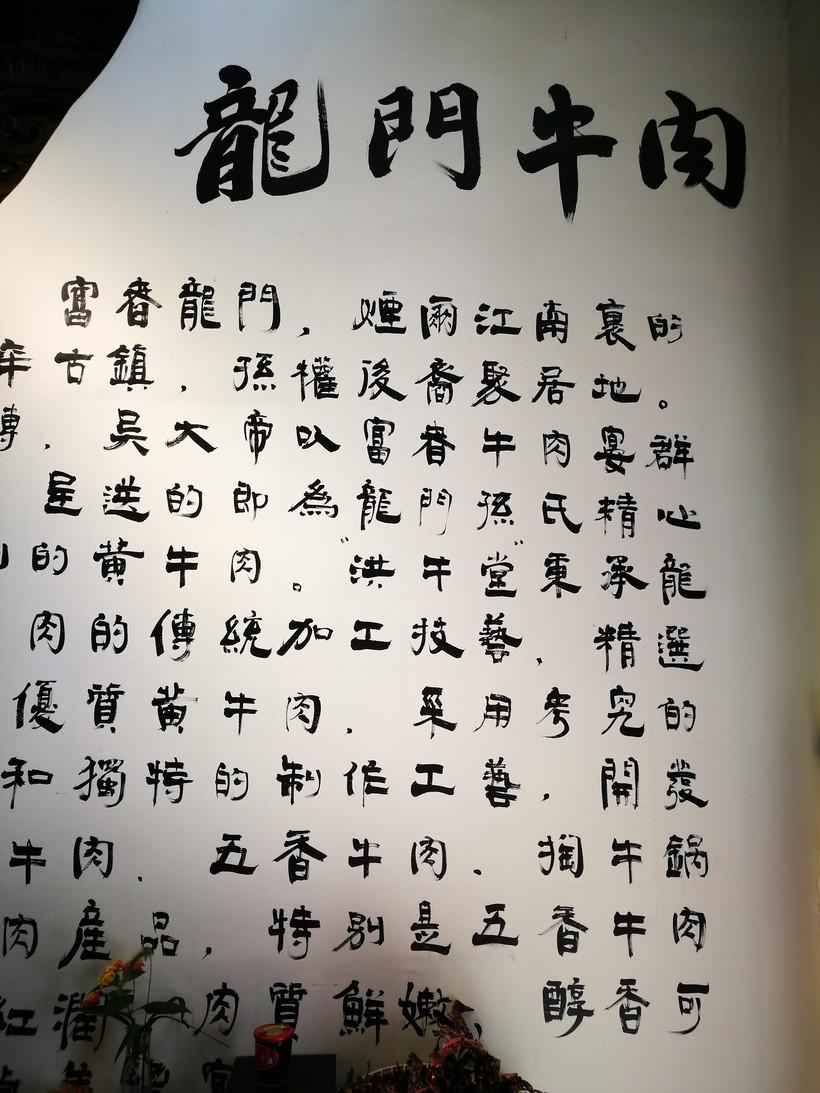 龍門牛肉
富春龍門，煙雨江南裏的
年古鎮，孫權後裔聚居地。
傳，吳大帝以富春牛肉宴群
呈送的即為龍門孫氏精心
的黃牛肉。"洪牛堂"秉承龍
肉的傳統加工技藝，精選
優質黃牛肉，采用考究的
和獨特的制作工藝，開發
牛肉、五香牛肉、掏牛鍋
肉産品，特別是五香牛肉
紅潤 肉質鮮嫩，醇香可